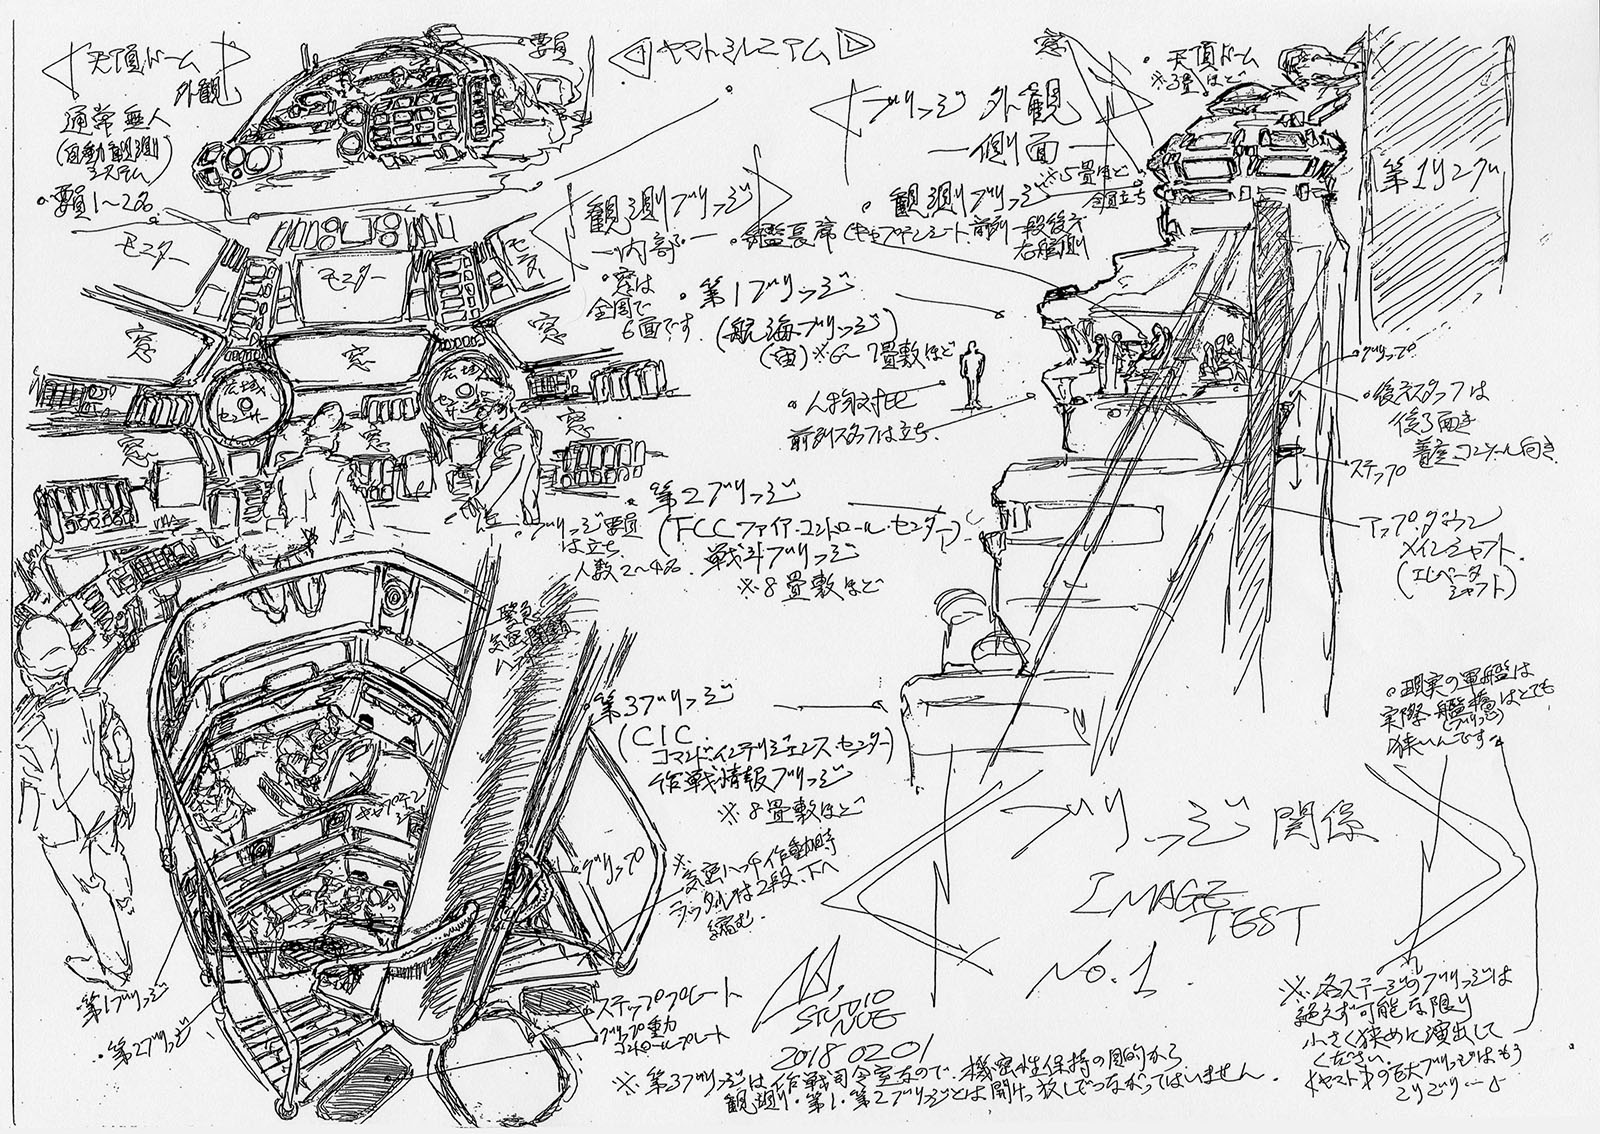 天頂ドーム
外観
通常無人
(自動観測
システム)
・要員1〜2名
要員
ヤマトミレニアム
ブリッジ 外観
側面
窓
・天頂ドーム
※3畳ほど
第1リング
観測ブリッジ
内部
・窓は
全周で
6面です
観測ブリッジ
※5畳ほど
全員立ち
・艦長席(キャプテンシート、前列一段後方
右舷側
モニター
モニター
窓
窓
窓
広域
センサー
広域
センサー
窓
窓
窓
・第1ブリッジ
(航海ブリッジ)
(宙)※6〜7畳敷ほど
・人物対比
前列スタッフは立ち
・グリップ
・後方スタッフは
後ろ向き
着座コンソール向き
ステップ
・アップ・ダウン
メインシャフト
(エレベータ
シャフト)
・ブリッジ要員
は立ち
人数2〜4名
・第2ブリッジ
(FCC ファイア・コントロール・センター)
戦斗ブリッジ
※8畳敷ほど
緊急
・第3ブリッジ
(CIC
コマンド・インテリジェンス・センター)
作戦情報ブリッジ
※8畳敷ほど
キャプテン
・グリップ
※気密ハッチ作動時
ラッタルは2段、下へ
縮む
・現実の軍艦は
実際、艦橋はとても
(ブリッジ)
狭いんです
ブリッジ 関係
IMAGE
TEST
No.1
・第1ブリッジ
・第2ブリッジ
・ステッププレート
グリップ重力
コントロールプレート
STUDIO
NUE
2018 02 01
※各ステージのブリッジは
絶えず可能な限り
小さく狭めに演出して
ください
ヤマトの巨大ブリッジはもう
こりごり…
※第3ブリッジは作戦司令室なので、機密性保持の目的から
観測・第1・第2ブリッジとは開けっ放しでつながってはいません。